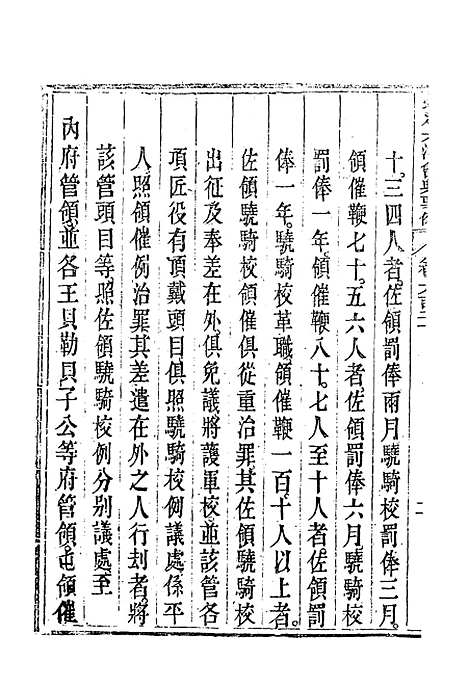 十三四人者佐領罰俸兩月驍騎校罰俸三月
領催鞭七十五六人者佐領罰俸六月驍騎校
罰俸一年領催鞭八十七人至十人者佐領罰
俸一年驍騎校革職領催鞭一百十人以上者
佐領驍騎校領催俱從重治罪其佐領驍騎校
出征及奉差在外俱免議將護軍校並該管各
項匠役有頂戴頭目俱照驍騎校例議處係平
人照領催例治罪其差遣在外之人行刦者將
該管頭目等照佐領驍騎校例分别議處至
內府管領並各王貝勒貝子公等府管領屯領催